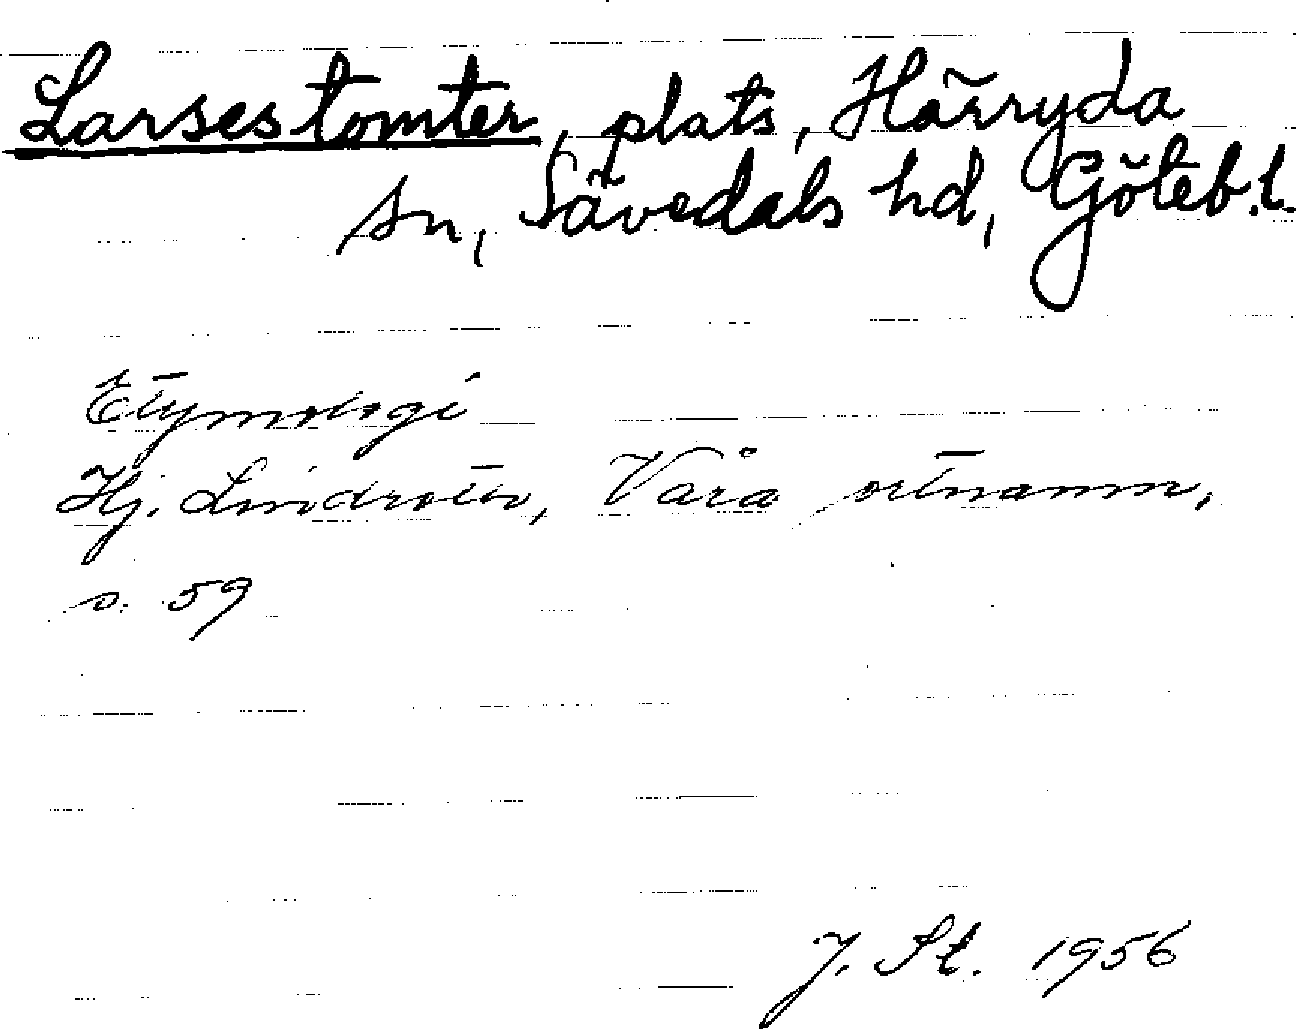 Larses tomter, plats, Härryda
sn, Sävedals hd, Göteb.l.
Etymologi
Hj. Lindroth, Våra ortnamn,
s. 59
J. St. 1956